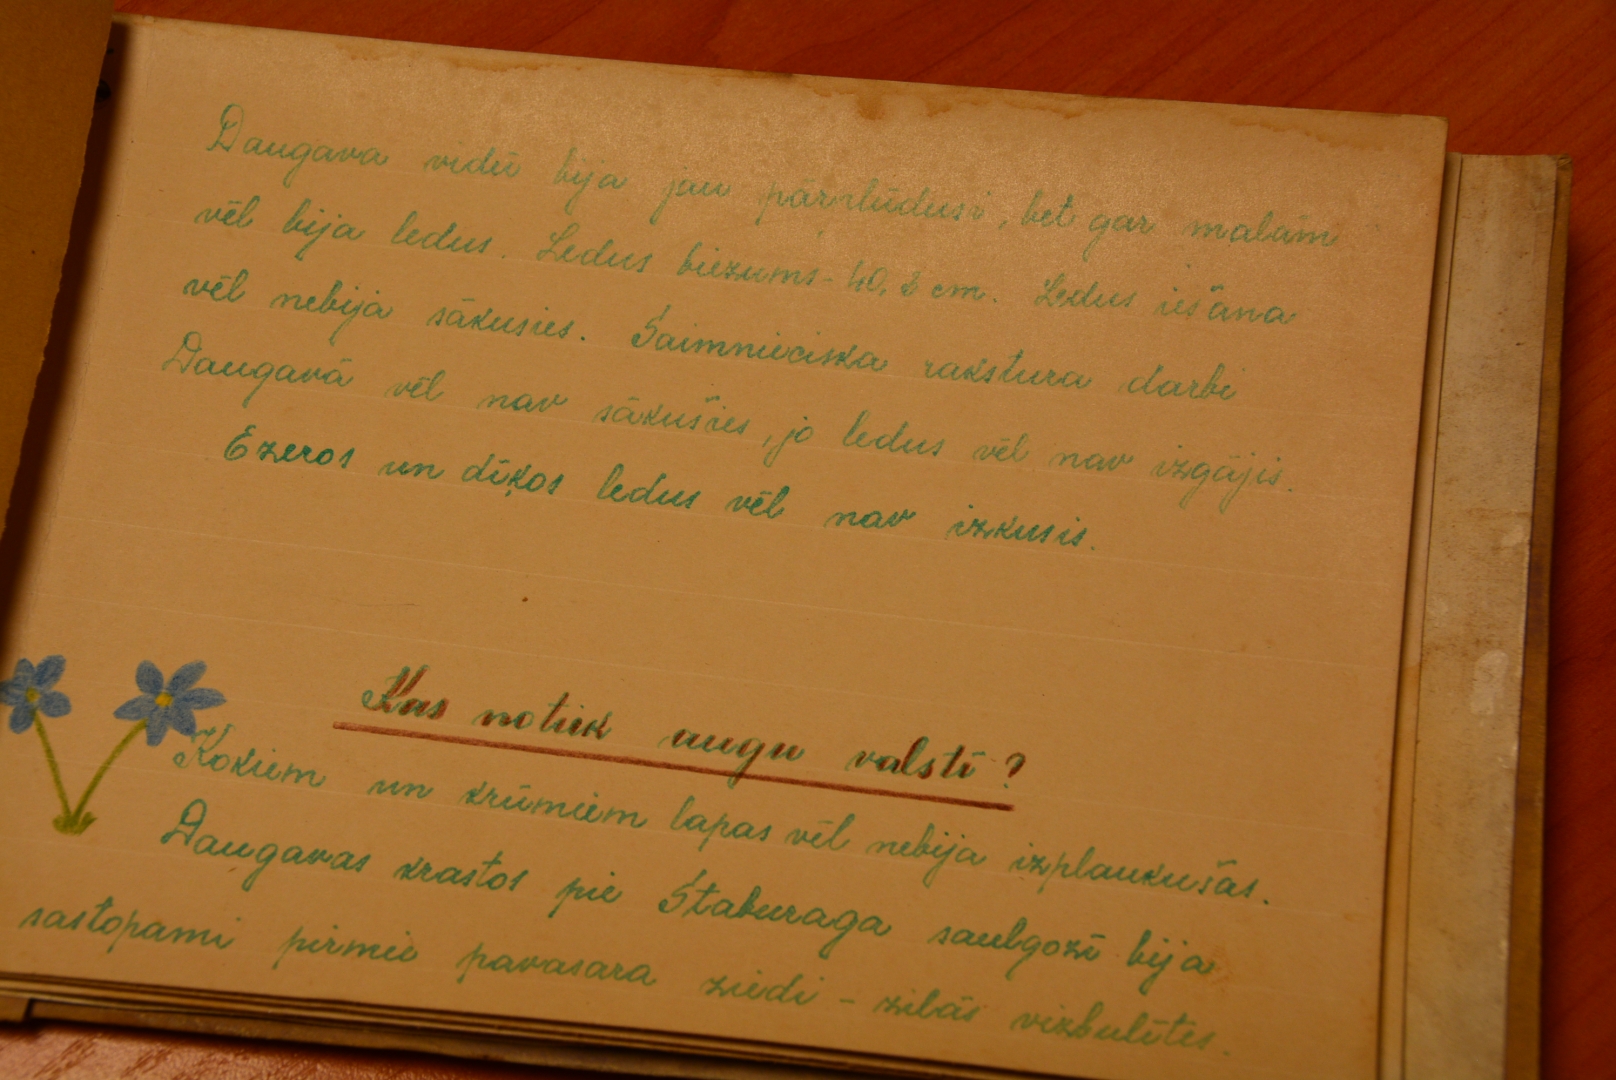 Daugava vidū bija jau pārplūdusi, bet gar malām
vēl bija ledus. Ledus biezums - 40,8 cm. Ledus iešana
vēl nebija sākusies. Saimnieciska rakstura darbi
Daugavā vēl nav sākušies, jo ledus vēl nav izgājis.
Ezeros un dīķos ledus vēl nav izkusis.
Kas notiek augu valstī?
Kokiem un krūmiem lapas vēl nebija izplaukušas.
Daugavas krastos pie Staburaga saulgozī bija
sastopami pirmie pavasara ziedi - zilās vizbulītes.